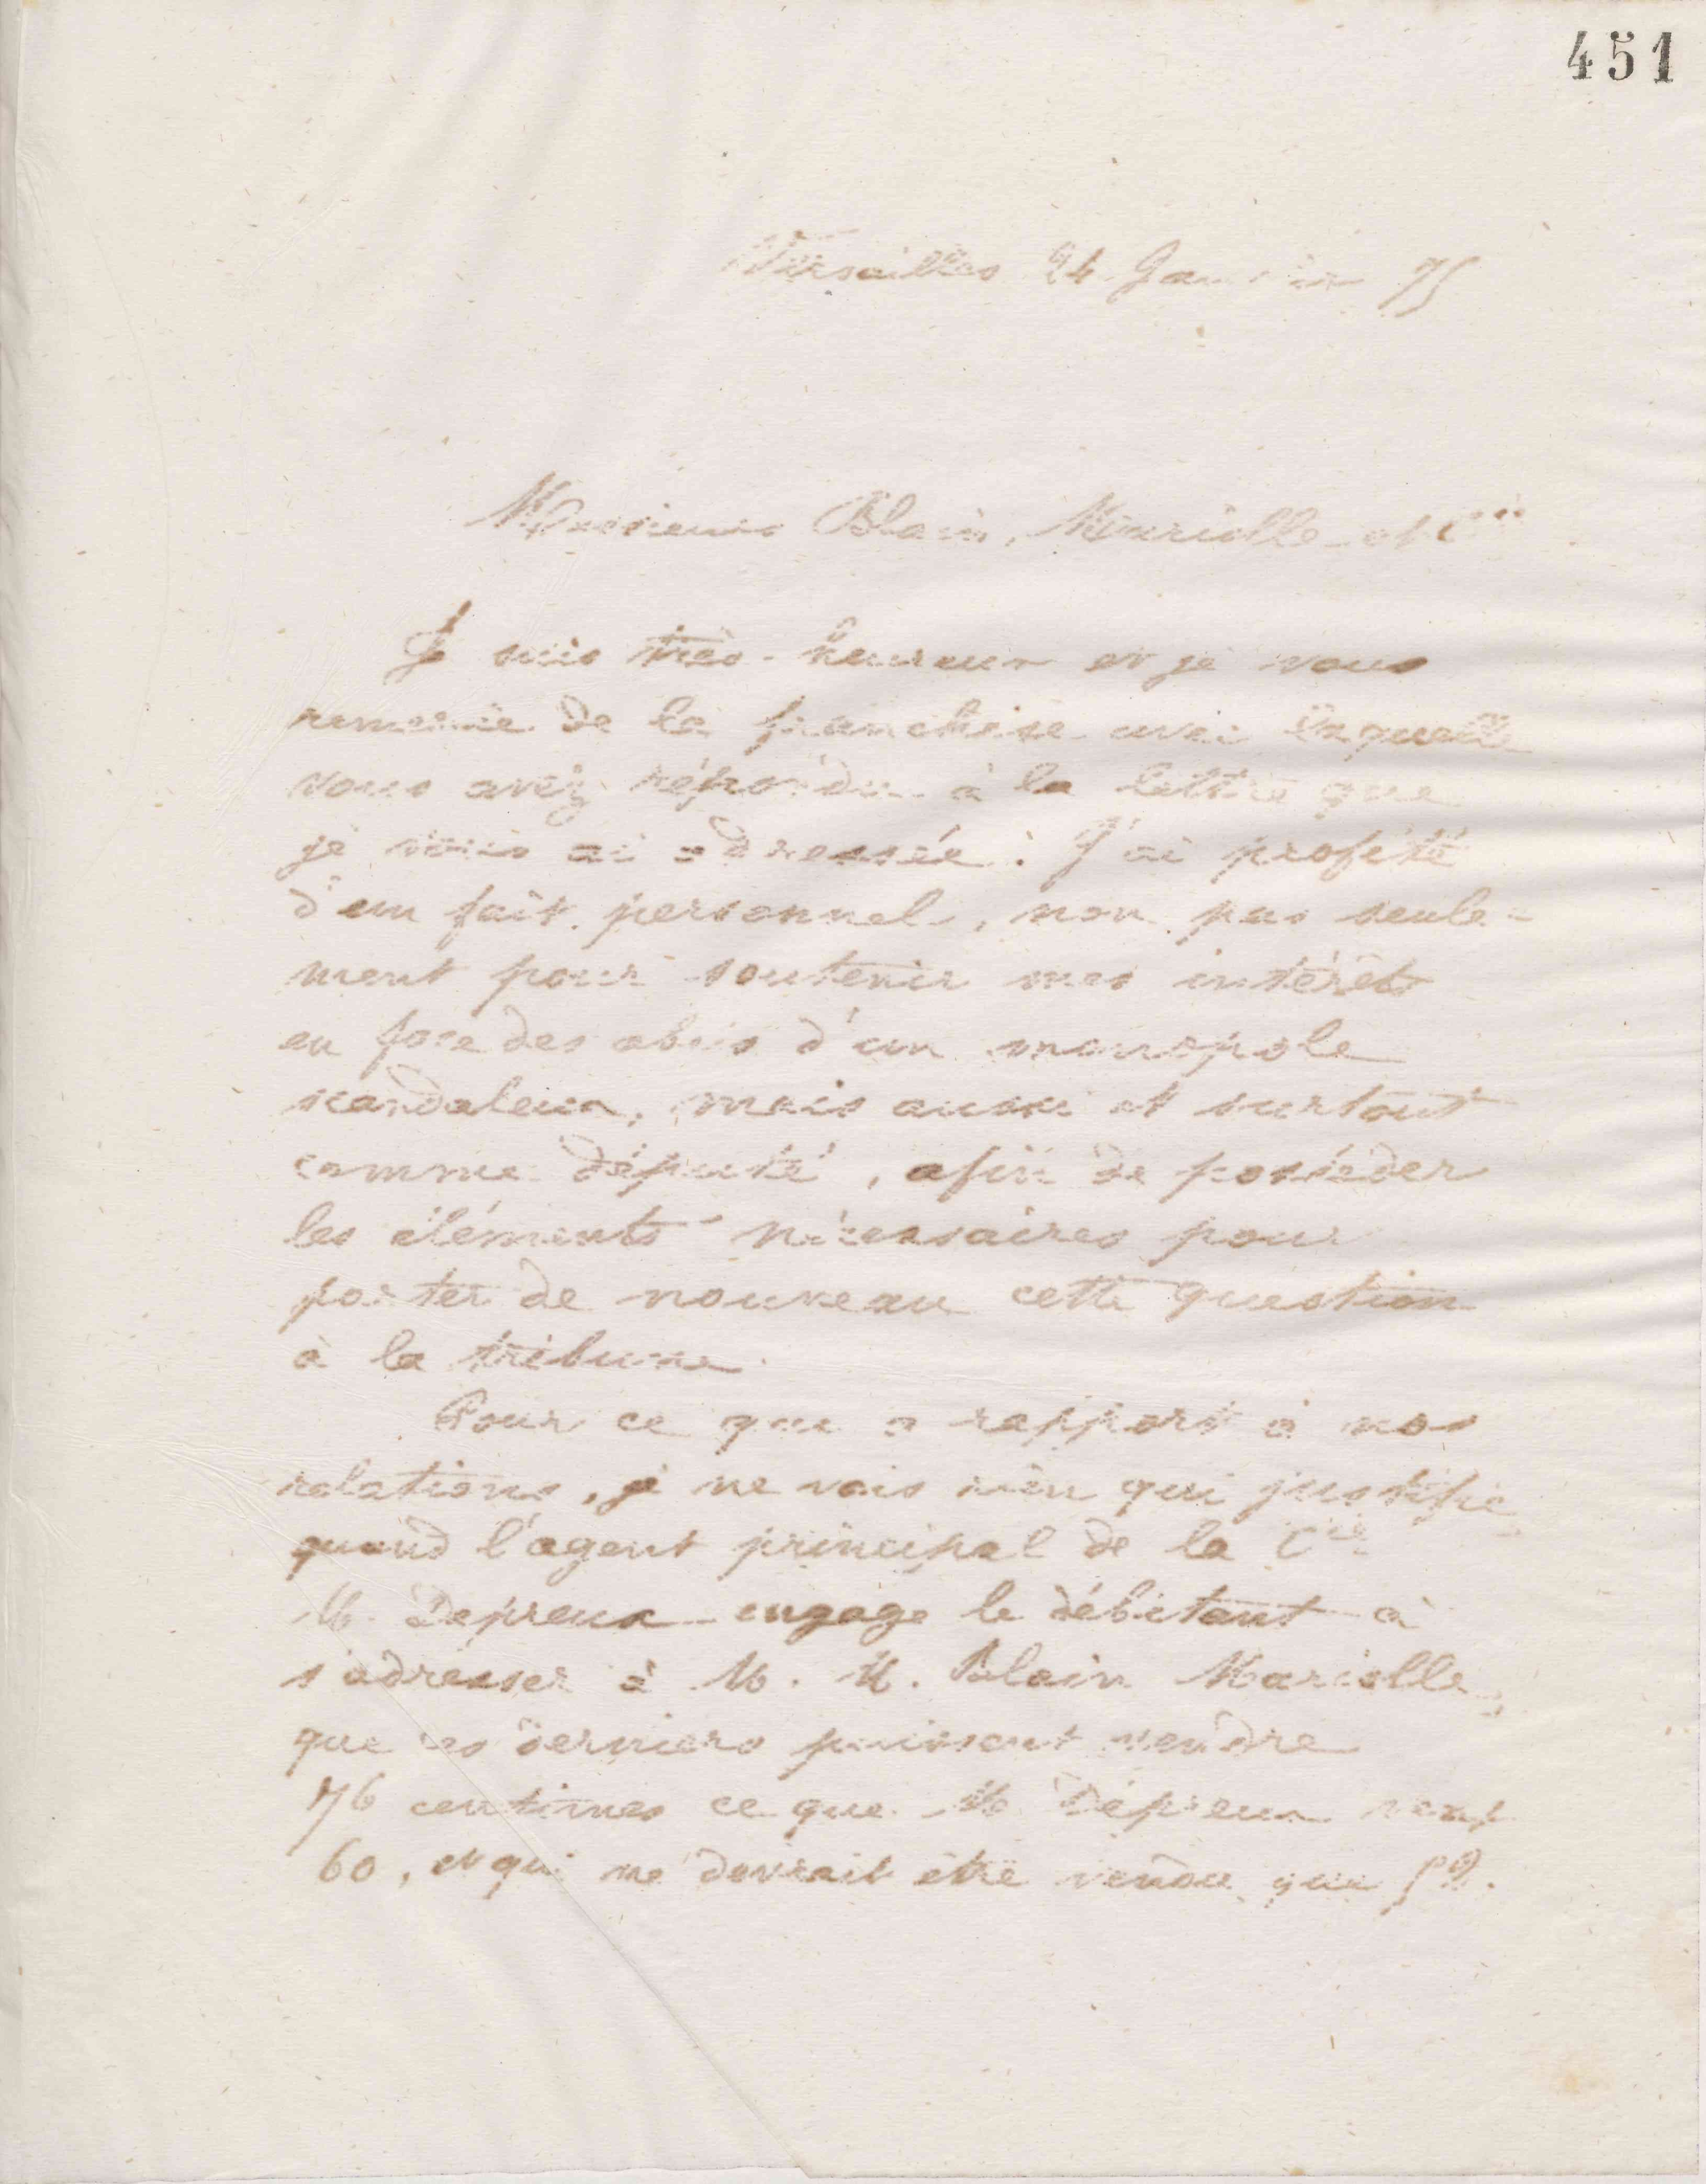 451
Versailles 24 Janvier 75
Messieurs Blain, Marielle et Cie
Je suis très-heureux et je vous
remercie de la franchise avec laquelle
vous avez répondu à la lettre que
je vous ai adressée. J'ai profité
d'un fait personnel, non pas seule-
ment pour soutenir mes intérêts
en face des abus d'un monopole
scandaleux, mais aussi et surtout
comme député, afin de posséder
les éléments nécessaires pour
porter de nouveau cette question
à la tribune.
Pour ce que a rapport à nos
relations, je ne vois rien qui justifie
quand l'agent principal de la Cie
M. Depreux engage le débitant à
s'adresser à M. M. Blain Marielle,
que ces derniers puissent vendre
76 centimes ce que M Dépreux vend
60, et qui ne devrait être vendu que